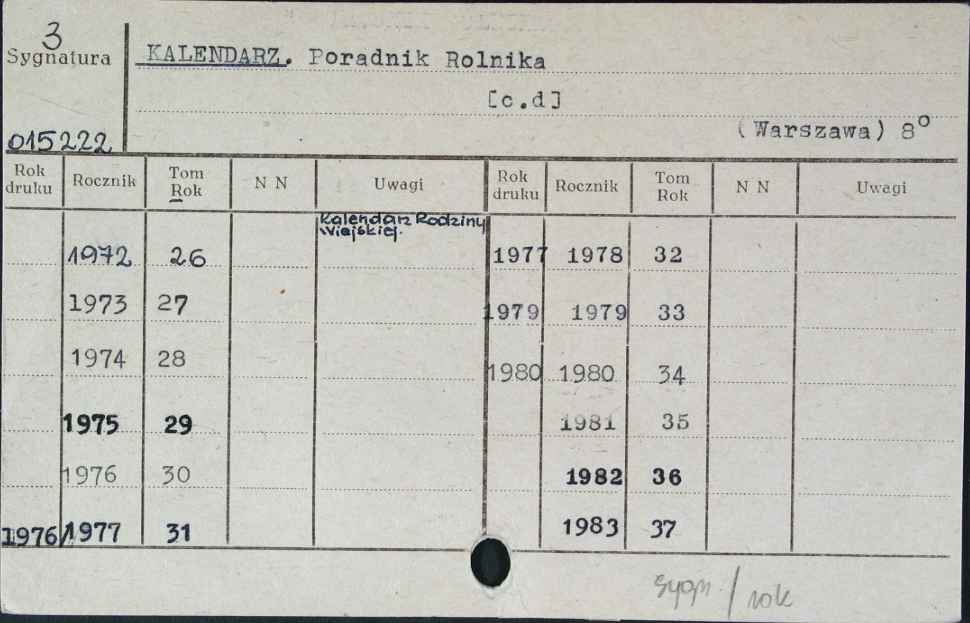 3
Sygnatura KALENDARZ. Poradnik Rolnika
[c.d]
015222 (Warszawa) 8°
Rok druku Rocznik Tom Rok N N Uwagi Rok druku Rocznik Tom Rok N N Uwagi
Kalendarz Rodziny
Wiejskiej.
1972 26 1977 1978 32
1973 27 1979 1979 33
1974 28 1980 1980 34
1975 29 1981 35
1976 30 1982 36
1976/1977 31 1983 37
sygn. / rok